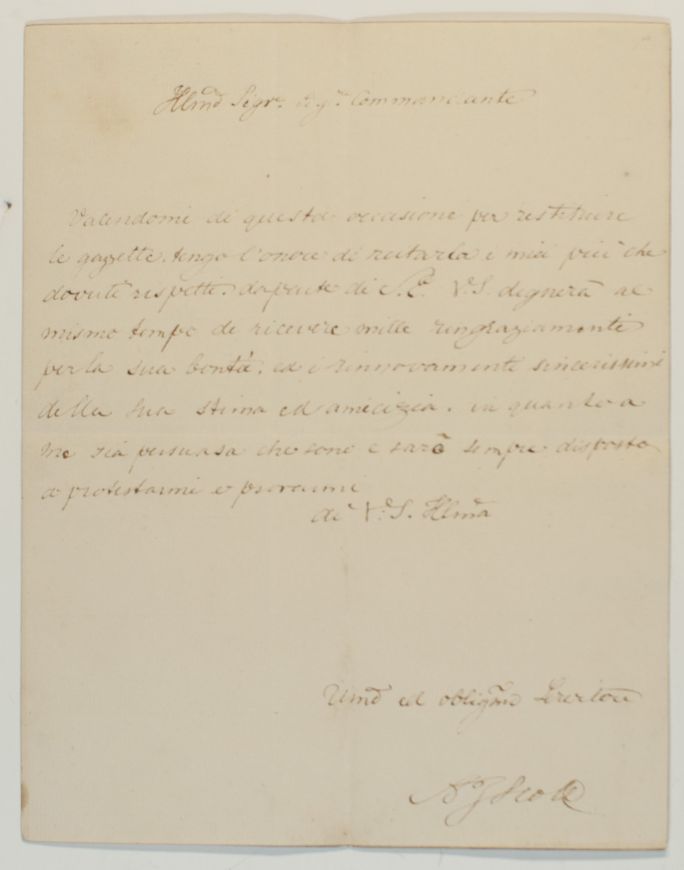 Illmo Sigre. Sigre Commandante
Valendomi di questa occasione per restituire
le gazette. tengo l'onore di recitarla i miei più che
dovuti rispetti. da parte di V.S. degnerà al
mismo tempo de ricevere mille ringraziamenti
per la sua bontà. ed i rinnovamenti sincerissimi
della sua stima ed amicizia. in quanto a
me sia persuasa che sono e sarò sempre disposto
a protestarmi e provarmi
di V.S. Illma
Umo ed obligmo Servitore